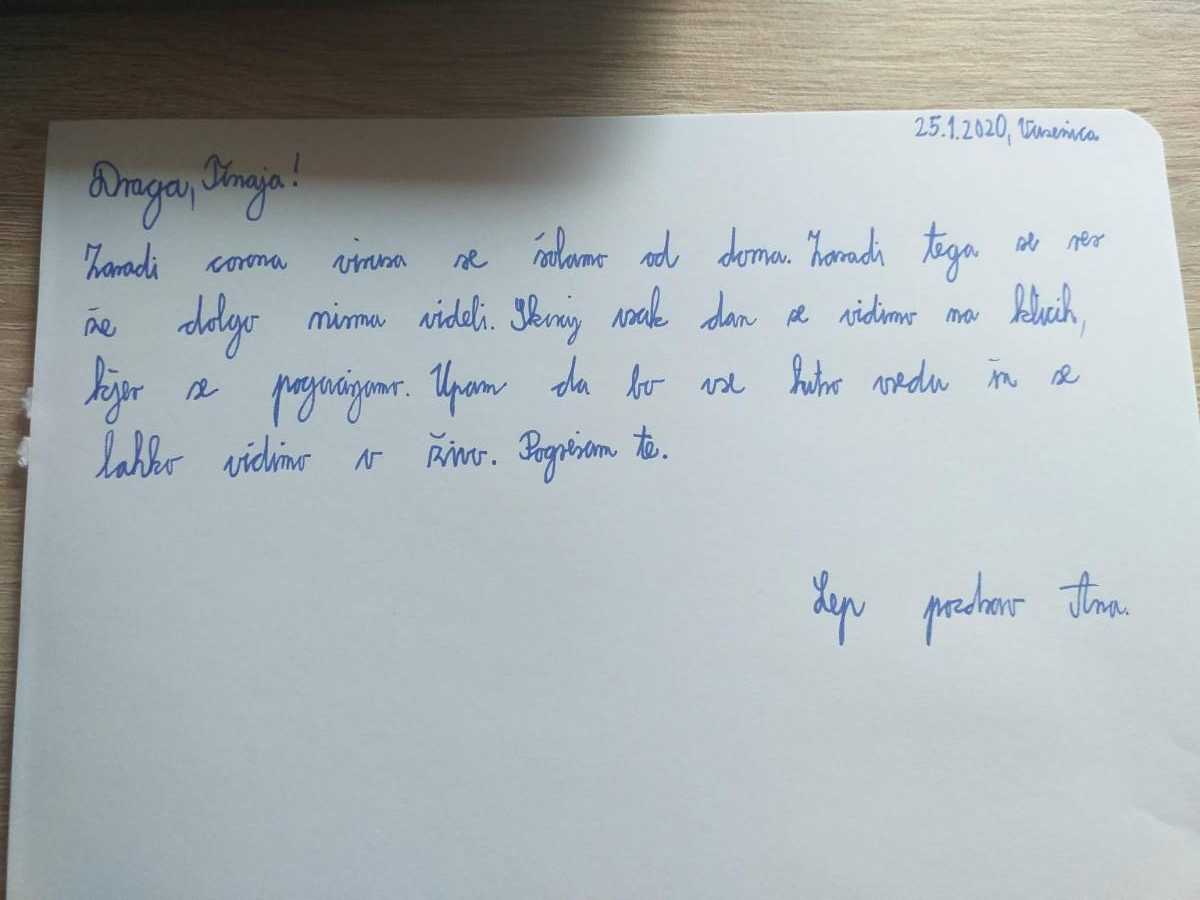 25.1.2020, Vuzenica
Draga, Tinaja!
Zaradi corona virusa se šolamo od doma. Zaradi tega se res
že dolgo nisma videli. Skoraj vsak dan se vidimo na klicih,
kjer se pogovarjamo. Upam da bo vse hitro vredu in se
lahko vidimo v živo. Pogrešam te.
Lep pozdrav Ana.